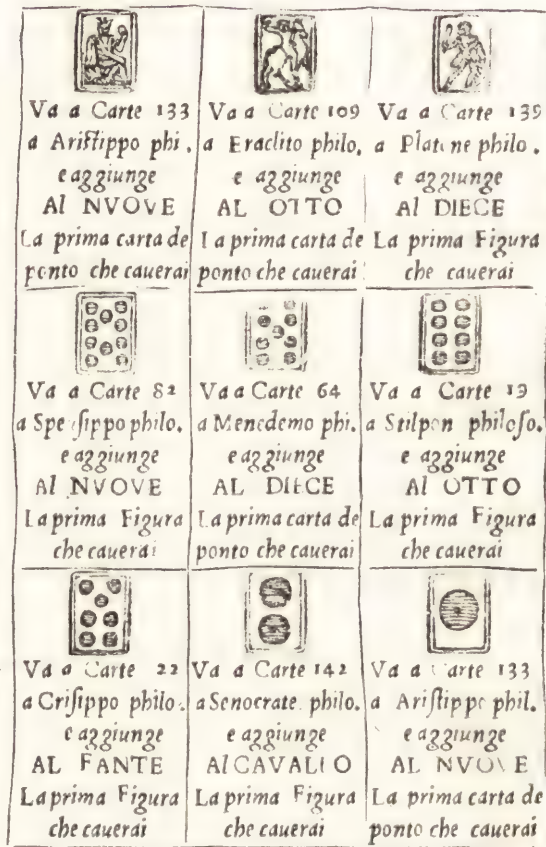 Va a Carte 133
a Ariſtippo phi.
e aggiunge
Al NVOVE
La prima carta de
ponto che cauerai
Va a Carte 109
a Eraclito philo.
e aggiunge
AL OTTO
La prima carta de
ponto che cauerai
Va a Carte 139
a Platone philo.
e aggiunge
Al DIECE
La prima Figura
che cauerai
Va a Carte 82
a Speuſippo philo.
e aggiunge
Al NVOVE
La prima Figura
che cauerai
Va a Carte 64
a Menedemo phi.
e aggiunge
AL DIECE
La prima carta de
ponto che cauerai
Va a Carte 19
a Stilpon philoſo.
e aggiunge
Al OTTO
La prima Figura
che cauerai
Va a Carte 22
a Criſippo philo.
e aggiunge
AL FANTE
La prima Figura
che cauerai
Va a Carte 142
a Senocrate philo.
e aggiunge
Al CAVALLO
La prima Figura
che cauerai
Va a Carte 133
a Ariſtippo phil.
e aggiunge
AL NVOVE
La prima carta de
ponto che cauerai